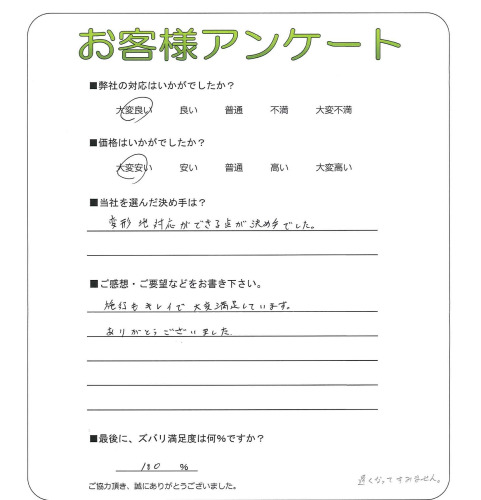 お客様アンケート
■弊社の対応はいかがでしたか？
大変良い 良い 普通 不満 大変不満
■価格はいかがでしたか？
大変安い 安い 普通 高い 大変高い
■当社を選んだ決め手は？
変形地対応ができる点が決め手でした。
■ご感想・ご要望などをお書き下さい。
施行もキレイで大変満足しています。
ありがとうございました。
■最後に、ズバリ満足度は何%ですか？
180 %
ご協力頂き、誠にありがとうございました。
遅くなってすみません。